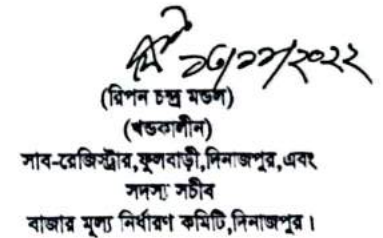 ১৬/১১/২০২২
(রিপন চন্দ্র মন্ডল)
(খন্ডকালীন)
সাব-রেজিস্ট্রার,ফুলবাড়ী,দিনাজপুর,এবং
সদস্য সচীব
বাজার মূল্য নির্ধারণ কমিটি,দিনাজপুর।